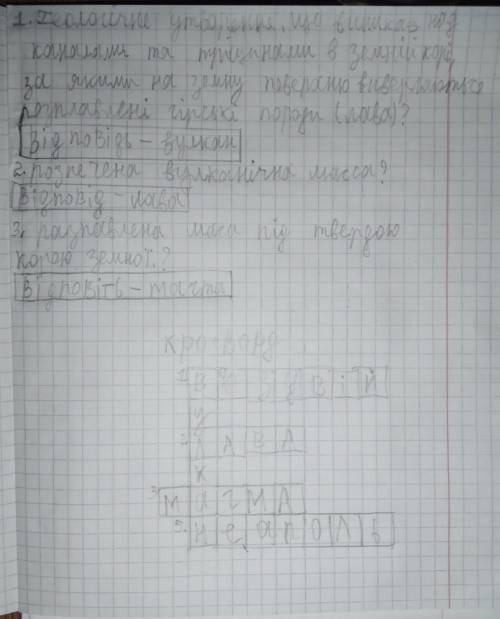 1. Геологічне утворення, що виникає над
каналами та тріщинами в земній корі
за якими на земну поверхню вивергаються
розплавлені гірські породи (лава)?
Відповідь - вулкан
2. розпечена вулканічна масса?
Відповід - лава
3. разплавлена маса під твердою
корою земної?
Відповіть - магма
кросворд
1. В е з у в і й
у
2. Л А В А
К
3. М а г м А
5. н е а п о л ь